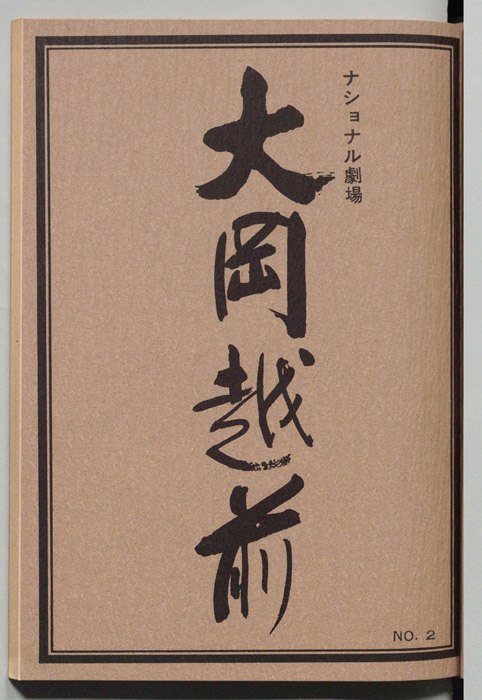 ナショナル劇場
大岡越前
NO. 2